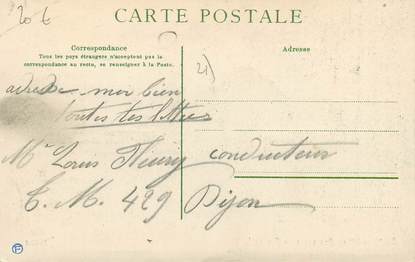 20 €
CARTE POSTALE
Correspondance
Tous les pays étrangers n'acceptent pas la
correspondance au recto, se renseigner à la Poste.
Adresse
21)
adresse moi bien
toutes tes lettres
Mr Louis Fleury conducteur
T. M. 429 Dijon